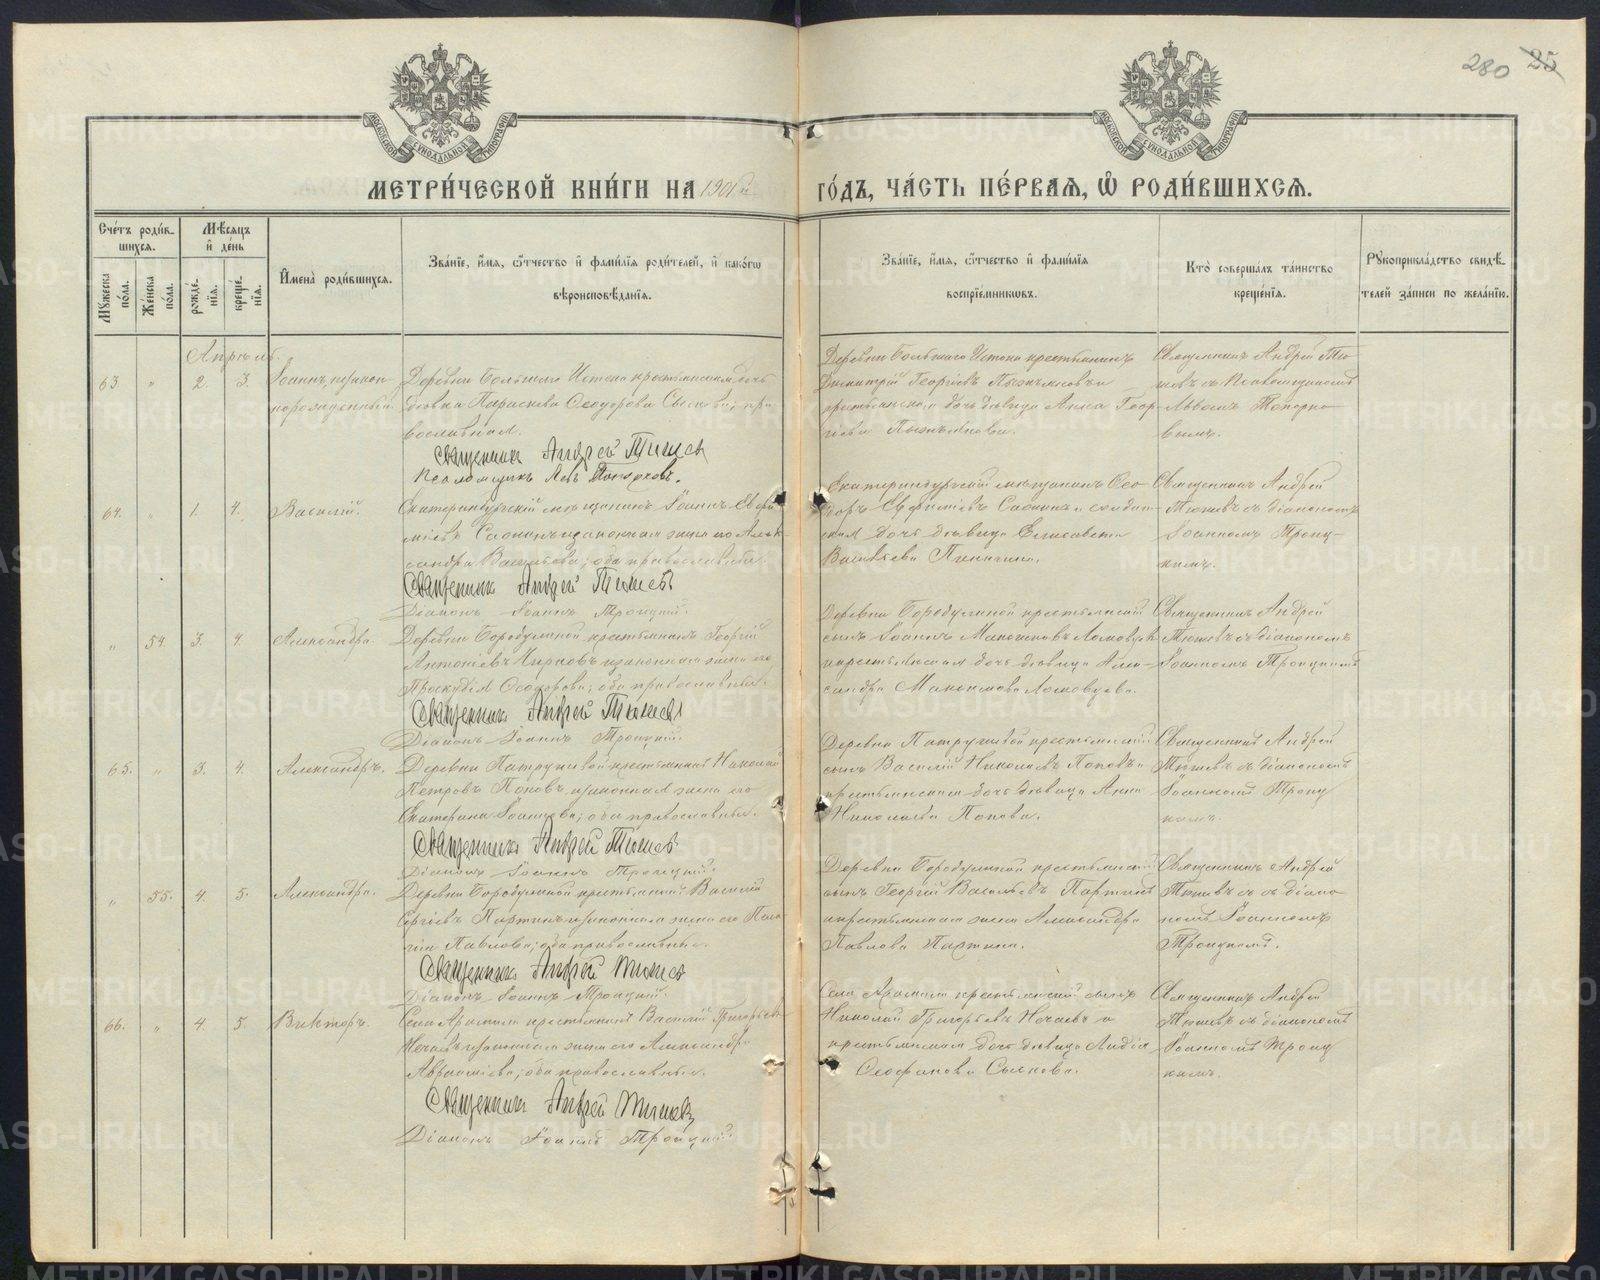 280 25
МОСКОВСКОЙ СѴНОДАЛЬНОЙ ТИПОГРАФІИ
МОСКОВСКОЙ СѴНОДАЛЬНОЙ ТИПОГРАФІИ
МЕТРИ́ЧЕСКОЙ КНИ́ГИ НА 1901й ГО́ДЪ, ЧА́СТЬ ПЕ́РВАЯ, Ѡ РОДИ́ВШИХСЯ.
Сче́тъ роди́в-
шихся.
Мѣ́сяцъ
и де́нь
Мꙋжеска
по́ла.
Же́нска
по́ла.
рожде́-
нїя.
креще́-
нїя.
Имена̀ роди́вшихся.
Зва́нїе, и́мя, ѻ́тчество и фами́лїя роди́телей, и како́гѡ
вѣроисповѣ́данїя.
Зва́нїе, и́мя, ѻ́тчество и фами́лїя
воспрїе́мникѡвъ.
Кто̀ соверша́лъ та́инство
креще́нїя.
Рꙋкоприкла́дство свидѣ́-
телей за́писи по жела́нїю.
Апрѣль.
63. " 2. 3.
Іоаннъ, незакон
норожденный
Деревни Большаго Истока крестьянская дочь
дѣвка Параскева Ѳеодорова Сыскова, пра
вославная.
Священникъ Андрей Тюшевъ
Псаломщикъ Левъ Топорковъ.
Деревни Большаго Истока крестьянинъ
Димитрій Георгіевъ и
крестьянская дочь дѣвица Анна Геор-
гіева
Священникъ Андрей Тю
шевъ съ Псаломщикомъ
Львомъ Топорко-
вымъ.
64. " 1. 4.
Василій.
Екатеринбургскій мѣщанинъ Іоаннъ Евфи
міевъ и законная жена его Алек-
сандра Васильева; оба православные.
Священникъ Андрей Тюшевъ
Діаконъ Іоаннъ Троицкій.
Екатеринбургскій мѣщанинъ Ѳео
доръ Евфиміевъ и
дочь дѣвица Елисавета
Васильева
Священникъ Андрей
Тюшевъ съ діакономъ
Іоанномъ Троиц-
кимъ.
" 54. 3. 4.
Александра.
Деревни Бородулиной крестьянинъ Георгій
Антоніевъ и законная жена его
Ѳеодорова; оба православные.
Священникъ Андрей Тюшевъ
Діаконъ Іоаннъ Троицкій.
Деревни Бородулиной крестьянскій
сынъ Іоаннъ Максимовъ
и крестьянская дочь дѣвица Алек-
сандра Максимова
Священникъ Андрей
Тюшевъ съ діакономъ
Іоанномъ Троицкимъ
65. " 3. 4.
Александръ.
Деревни Патрушевой крестьянинъ Николай
Петровъ Поповъ и законная жена его
Екатерина оба православные.
Священникъ Андрей Тюшевъ
Діаконъ Іоаннъ Троицкій.
Деревни Патрушевой крестьянскій
сынъ Василій Николаевъ Поповъ и
крестьянская дочь дѣвица Анна
Николаева Попова.
Священникъ Андрей
Тюшевъ съ діакономъ
Іоанномъ Троиц
кимъ.
" 55. 4. 5.
Александра.
Деревни Бородулиной крестьянинъ Василій
Сергіевъ Партинъ и законная жена его
Павлова; оба православные.
Священникъ Андрей Тюшевъ
Діаконъ Іоаннъ Троицкій.
Деревни Бородулиной крестьянскій
сынъ Георгій Васильевъ Партинъ
и крестьянская жена Александра
Павлова Партина.
Священникъ Андрей
Тюшевъ съ діако
номъ Іоанномъ
Троицкимъ.
66. " 4. 5.
Викторъ.
Села Арамили крестьянинъ Василій Григорьевъ
Нечаевъ и законная жена его Александра
оба православные.
Священникъ Андрей Тюшевъ
Діаконъ Іоаннъ Троицкій
Села Арамили крестьянскій сынъ
Николай Григорьевъ Нечаевъ и
крестьянская дочь дѣвица Лидія
Ѳеофанова Сыскова.
Священникъ Андрей
Тюшевъ съ діакономъ
Іоанномъ Троиц
кимъ.
METRIKI.GASO-URAL.RU